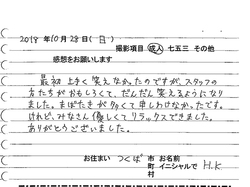 2018年10月28日(日)
撮影項目 成人 七五三 その他
感想をお願いします
最初 上手く笑えなかったのですが、スタッフの
方たちがおもしろくて、だんだん笑えるようになり
ました。まばたきが多くて申しわけなかったです。
けれど、みなさん優しくてリラックスできました。
ありがとうございました。
お住まい つくば 市 お名前
町 イニシャルで H.K
村